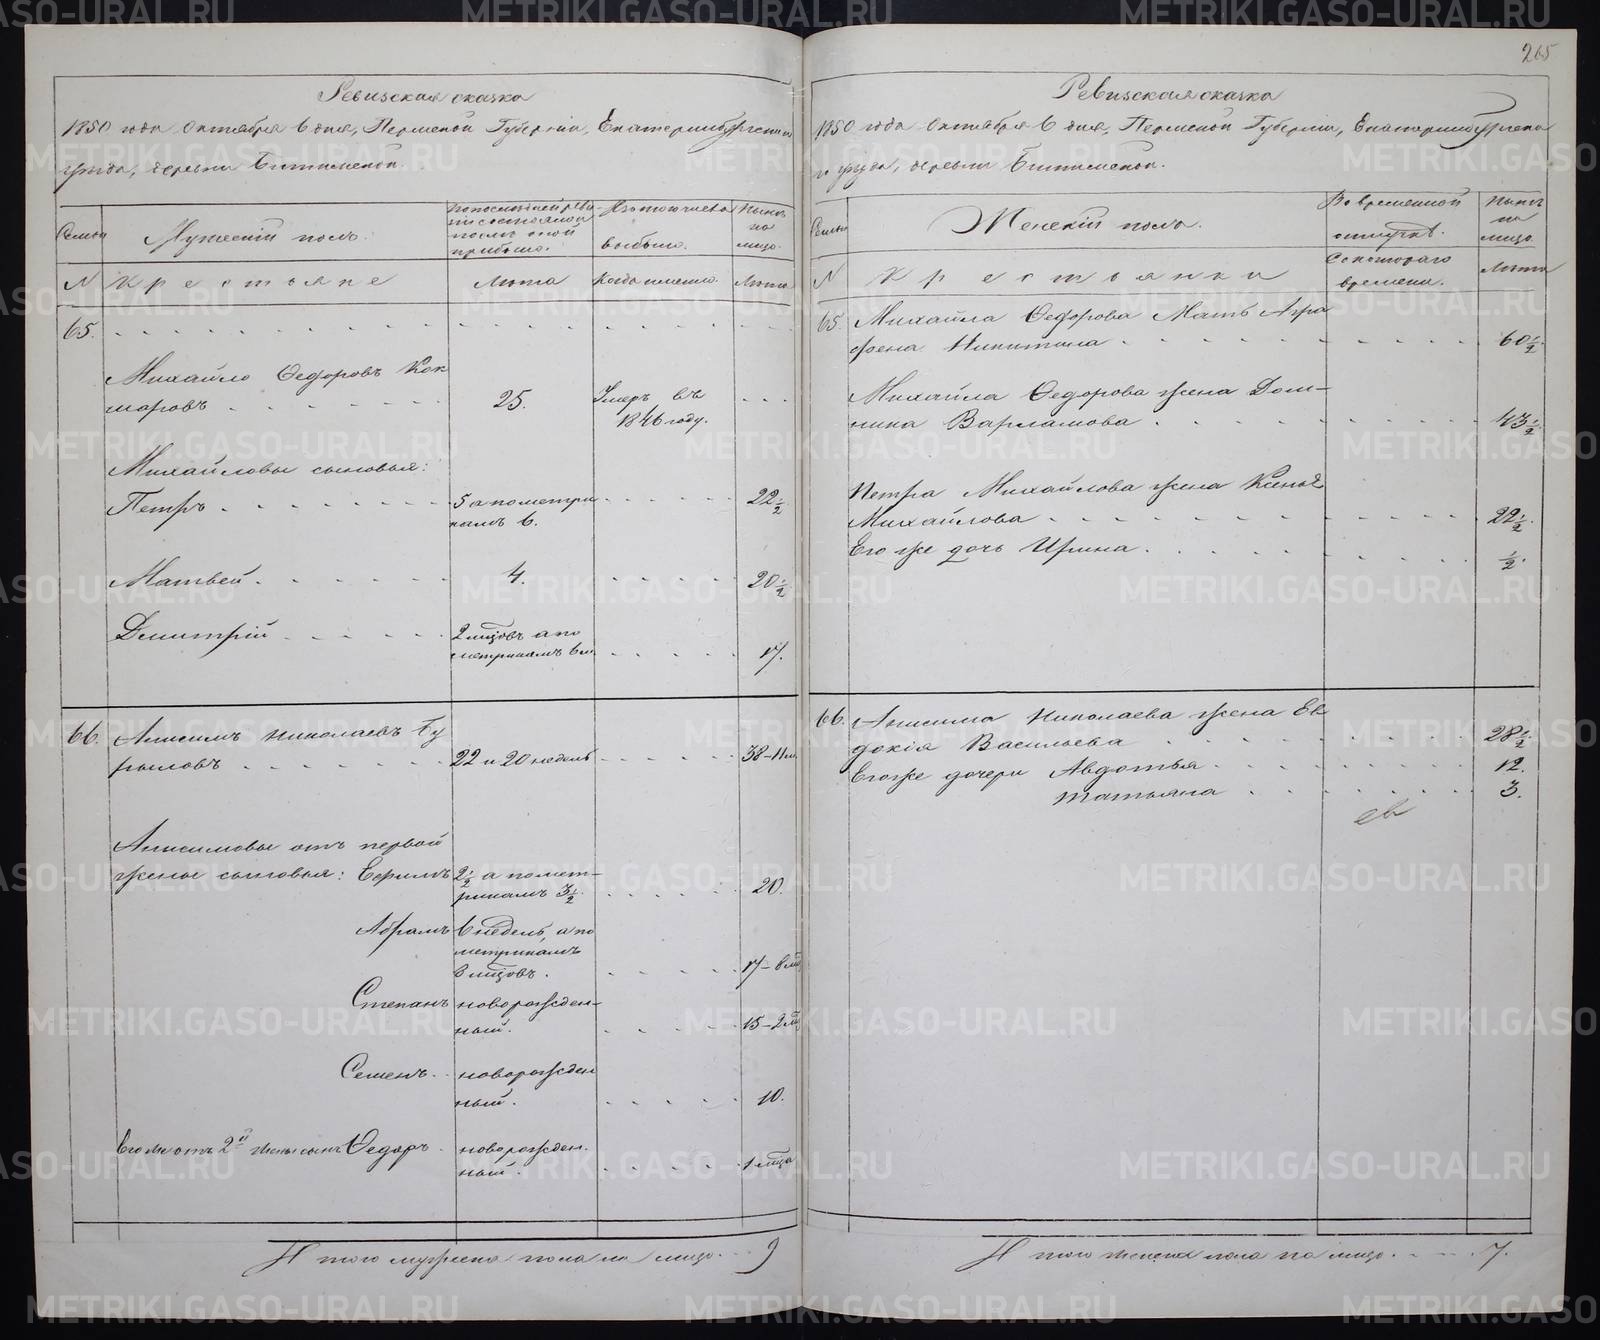 265
Ревизская сказка
1850 года Октября 6 дня, Пермской Губернии, Екатеринбургскаго
уезда, деревни Битимской.
Семьи
Мужеский полъ.
По последней ревизии состояло и после оной прибыло.
Изъ того числа выбыло.
Ныне на лицо.
N
Крестьяне
Лета
Когда именно.
Лета
65.
Михайло Федоровъ Кок
шаровъ
25.
Умеръ въ
1846 году.
Михайловы сыновья:
Петръ
5 а по метри
камъ 6.
22 1/2
Матвей
4.
20 1/2
Дмитрій
2 мцовъ а по
метрикамъ 6 м.
17.
66.
Анисимъ Николаевъ Бу
рыловъ
22 и 20 недель
38-11 м.
Анисимовы отъ первой
жены сыновья: Ефимъ
2 1/2 а по мет-
рикамъ 3 1/2
20.
Абрамъ
6 недель, а по
метрикамъ
3 мцовъ.
17-8 мц
Степанъ
новорожден-
ный.
15-2 мц
Семенъ
новорожден
ный.
10.
Его же отъ 2й жены сынъ Федоръ
новорожден
ный.
1 мца
Итого мужеска пола на лицо 9
Ревизская сказка
1850 года Октября 6 дня, Пермской Губернии, Екатеринбургска
го уезда, деревни Битимской.
Семьи
Женскій полъ.
Во временной
отлучке.
Ныне
на
лицо.
N
Крестьянки
Съ котораго
времени.
Лета
65.
Михайла Федорова Мать Агра
фена Никитина
60 1/2
Михайла Федорова жена Дом-
нина Варламова
43 1/2
Петра Михайлова жена Ксенья
Михайлова
22 1/2
Его же дочь Ирина
1/2
66.
Анисима Николаева жена Ев
докія Васильева
28 1/2
Его же дочери Авдотья
12.
Татьяна
3.
Итого женска пола на лицо 7.
METRIKI.GASO-URAL.RU